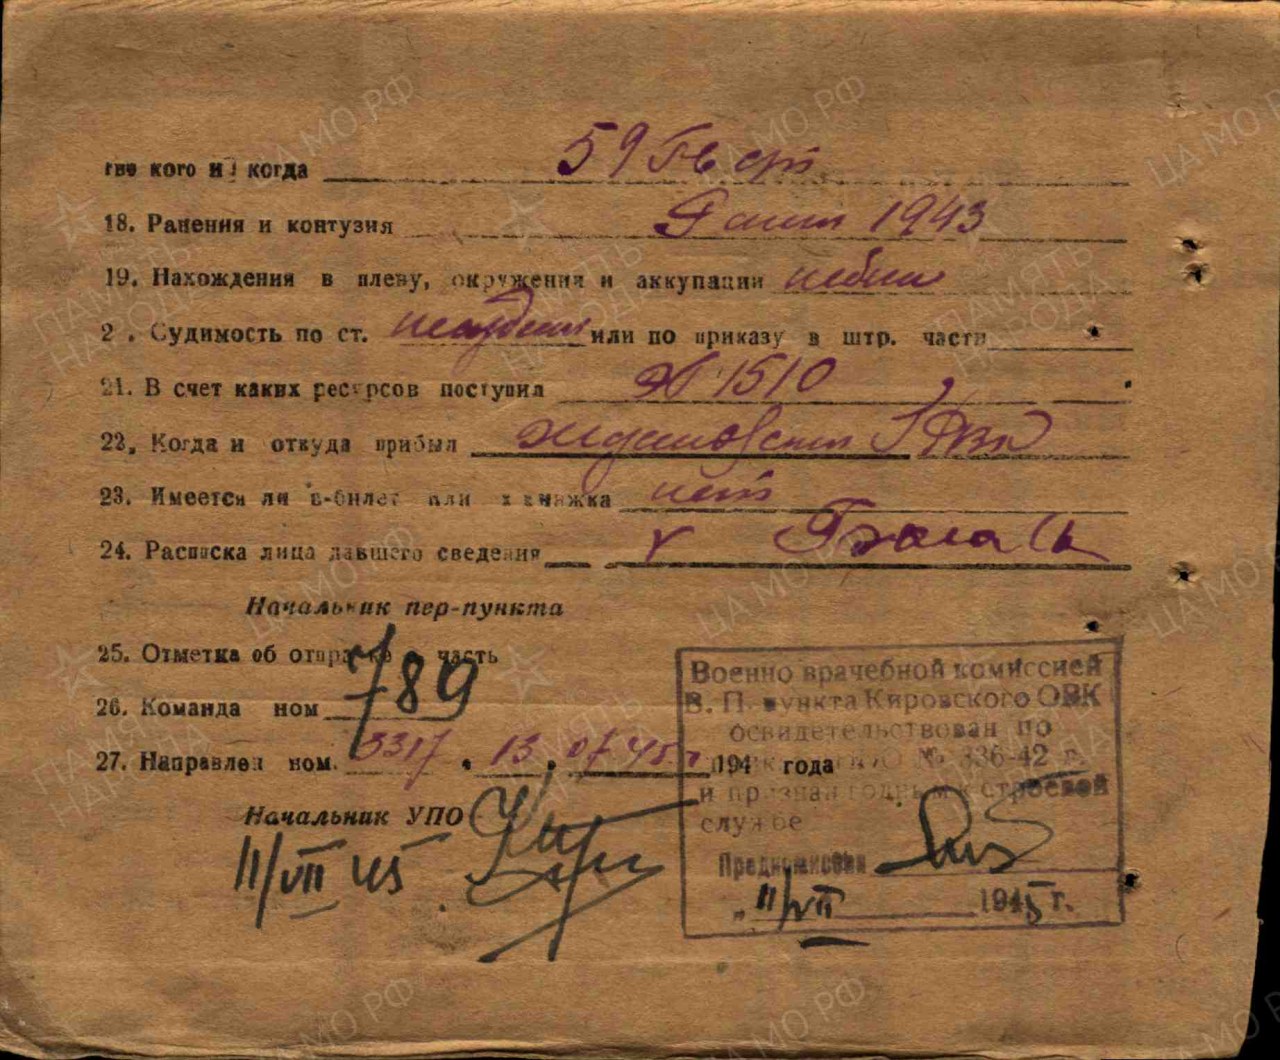 гво кого и когда 59 Гв сп
18. Ранения и контузия 1943
19. Нахождения в плену, окружении и аккупации небыл
2 . Судимость по ст. несудим или по приказу в штр. части
21. В счет каких ресурсов поступил 1510
22. Когда и откуда прибыл Ждановский РВК
23. Имеется ли в-билет или кр книжка нет
24. Расписка лица давшего сведения
Начальник пер-пункта
25. Отметка об отправке в часть
26. Команда ном 789
27. Направлен ном. 3317 . 13 . 07 45 г 194 года
Начальник УПО
11/VII 45
Военно врачебной комиссией
В. П. пункта Кировского ОВК
освидетельствован по
№ 336-42 г.
и признан годным к строевой
службе
Пред комиссии
„ 11/VII 1945 г.
ЦА МО РФ
ПАМЯТЬ НАРОДА